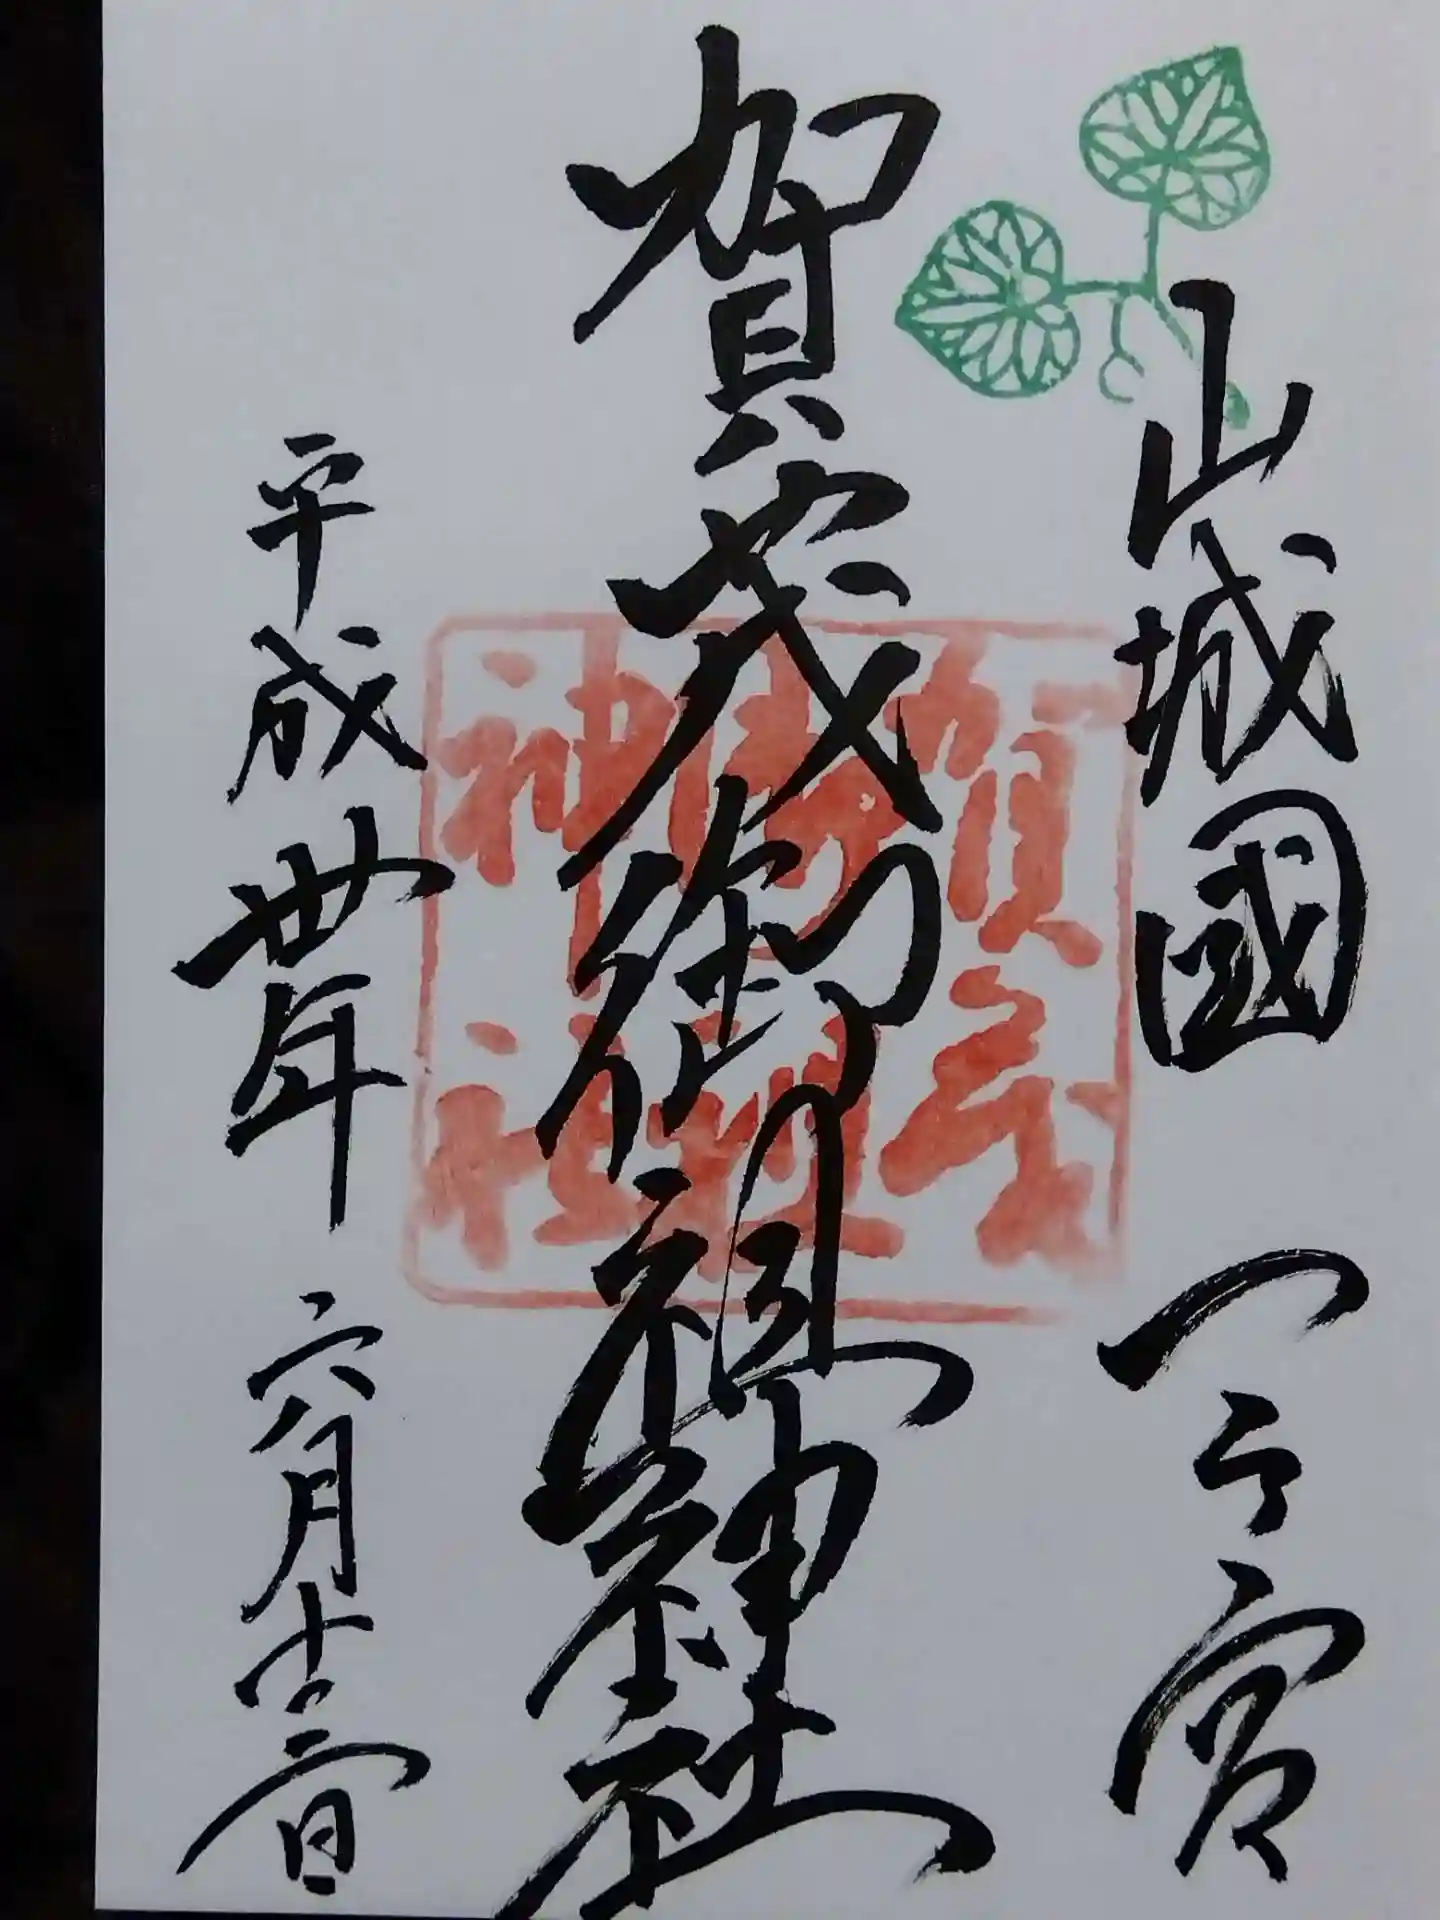 山城國 一之宮
賀茂御祖神社
平成丗年 六月十三日
賀茂
御祖
神社